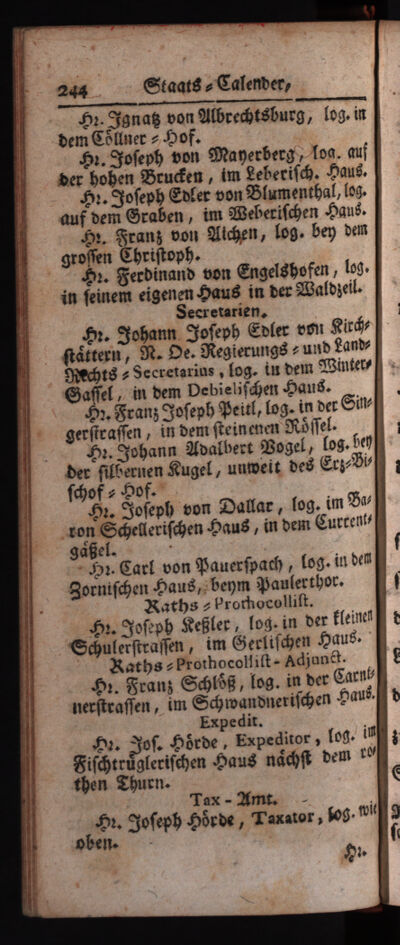 244 Staats-Calender,
Hr. Ignatz von Albrechtsburg, log. in
dem Cöllner-Hof.
Hr. Joseph von Mayerberg, log. auf
der hohen Brucken, im Leberisch. Haus.
Hr. Joseph Edler von Blumenthal, log.
auf dem Graben, im Weberischen Haus.
Hr. Franz von Aichen, log. bey dem
grossen Christoph.
Hr. Ferdinand von Engelshofen, log.
in seinem eigenen Haus in der Waldzeil.
Secretarien.
Hr. Johann Joseph Edler von Kirch-
stättern, N. Oe. Regierungs- und Land-
Rechts-Secretarius, log. in dem Winter-
Gassel, in dem Debielischen Haus.
Hr. Franz Joseph Peitl, log. in der Sin-
gerstrassen, in dem steinenen Rössel.
Hr. Johann Adalbert Vogel, log. bey
der silbernen Kugel, unweit des Ertz-Bi-
schof-Hof.
Hr. Joseph von Dallar, log. im Ba-
ron Schellerischen Haus, in dem Current-
gäßel.
Hr. Carl von Pauerspach, log. in dem
Zornischen Haus, beym Paulerthor.
Raths-Prothocollist.
Hr. Joseph Keßler, log. in der kleinen
Schulerstrassen, im Gerlischen Haus.
Raths-Prothocollist-Adjunct.
Hr. Franz Schlöß, log. in der Carnt-
nerstrassen, im Schwandnerischen Haus.
Expedit.
Hr. Jos. Hörde, Expeditor, log. im
Fischtrüglerischen Haus nächst dem ro-
then Thurn.
Tax-Amt.
Hr. Joseph Hörde, Taxator, log. wie
oben.
Hr.